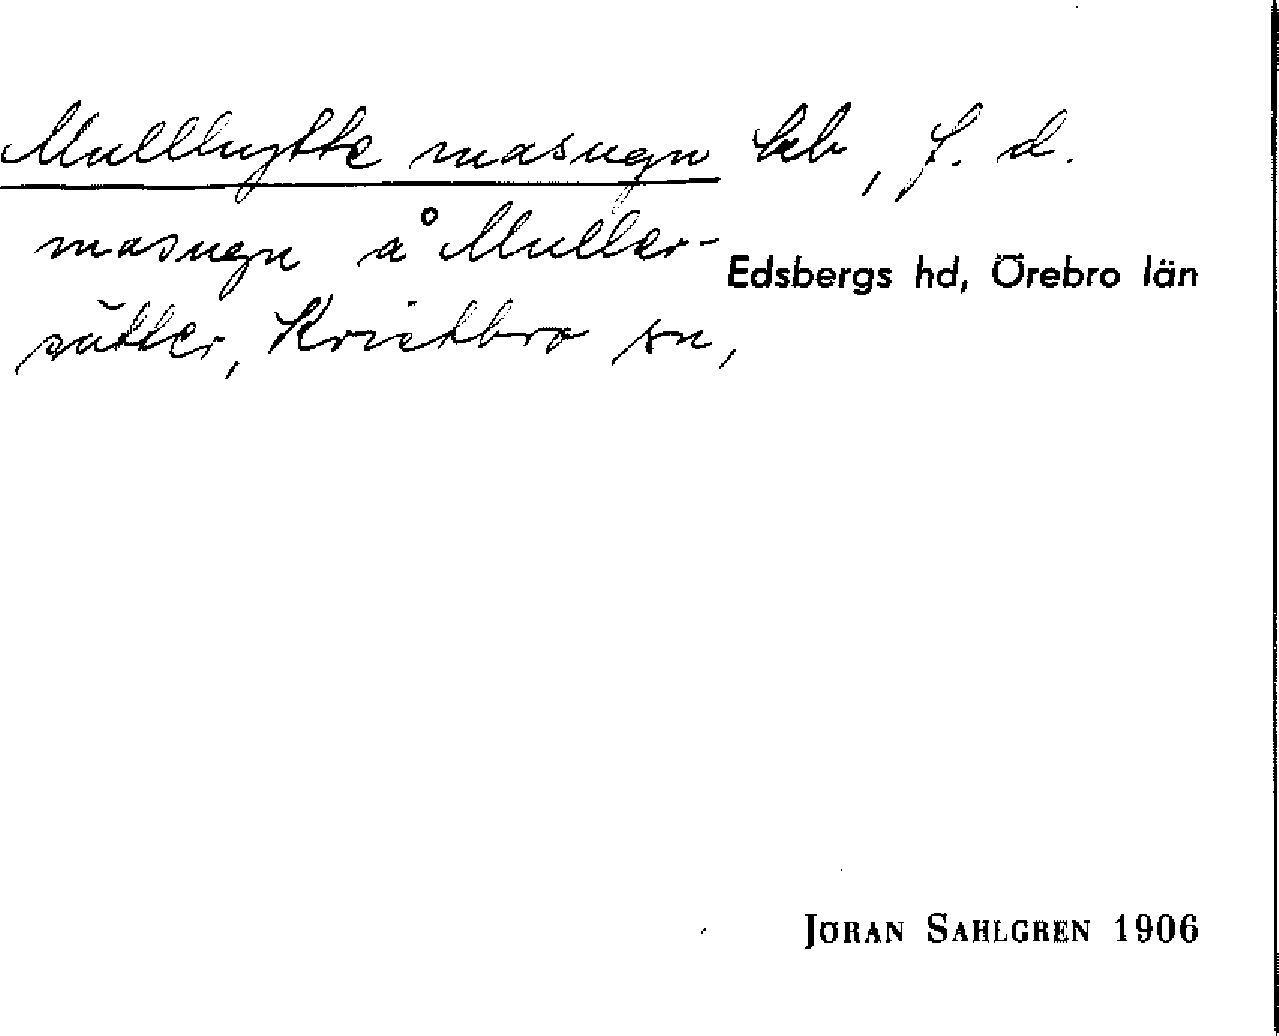 Mullhytte masugn beb, f. d.
masugn å Muller-
sätter, Kvistbro sn,
Edsbergs hd, Örebro län
JÖRAN SAHLGREN 1906